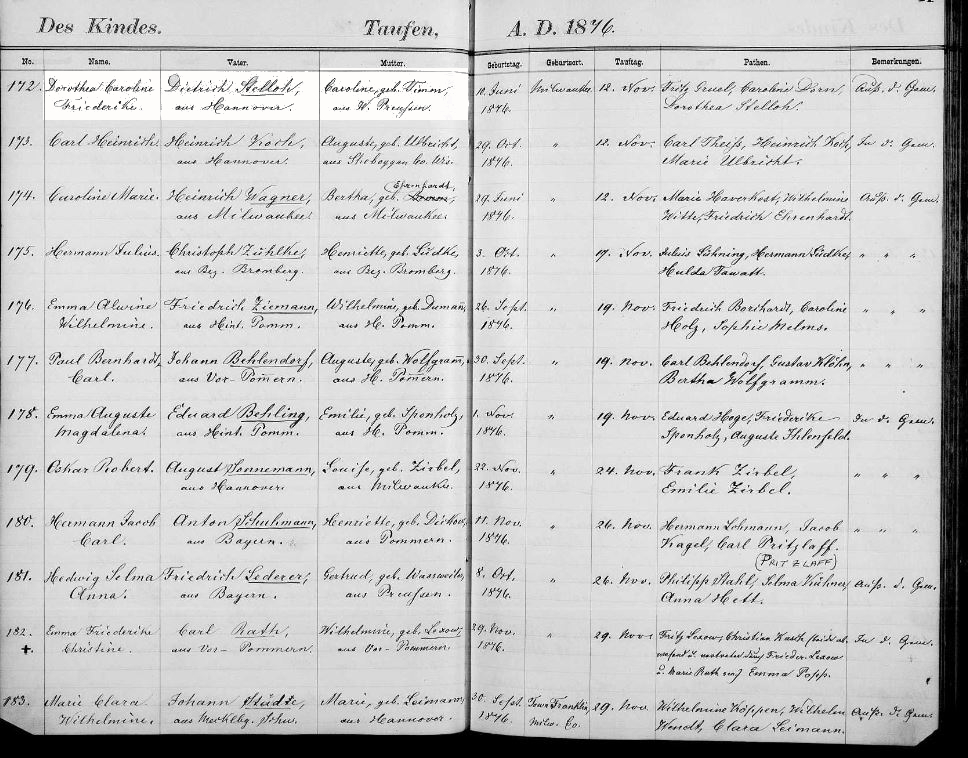 Des Kindes. Taufen, A. D. 1876.
No. Name. Vater. Mutter. Geburtstag. Geburtsort. Tauftag. Pathen. Bemerkungen.
172. Dorothea Caroline Dietrich Stelloh, Caroline, geb. Timm, 10. Juni Milwaukee 12. Nov. Fritz Gruel, Caroline Dörn, Auß. d. Gem.
Friederike. aus Hannover. aus W. Preußen. 1876. Dorothea Stelloh.
173. Carl Heinrich Heinrich Koch, Auguste, geb. Ulbricht, 29. Oct. " 12. Nov. Carl Theiß, Heinrich Koch, In d. Gem.
aus Hannover. aus Sheboygan Co. Wis. 1876. Marie Ulbricht.
174. Caroline Marie. Heinrich Wagner, Bertha, geb. Ehrenhardt, 29. Juni " 12. Nov. Marie Haverkost, Wilhelmine Auß. d. Gem.
aus Milwaukee. aus Milwaukee. 1876. Witte, Friedrich Ehrenhardt.
175. Hermann Julius. Christoph Zühlke, Henriette, geb. Lüdke, 3. Oct. " 19. Nov. Julius Lühning, Hermann Lüdke, " " "
aus Bez. Bromberg. aus Bez. Bromberg. 1876. Hulda
176. Emma Alwine Friedrich Ziemann, Wilhelmine, geb. Dumañ, 26. Sept. " 19. Nov. Friedrich Borchardt, Caroline " " "
Wilhelmine. aus Hint. Pomm. aus H. Pomm. 1876. Holz, Sophie Melms.
177. Paul Bernhardt Johann Behlendorf, Auguste, geb. Wolfgram̄, 30. Sept. " 19. Nov. Carl Behlendorf, Gustav Klöhn, " " "
Carl. aus Vor-Pom̄ern. aus H. Pom̄ern. 1876. Bertha Wolfgramm.
178. Emma Auguste Eduard Behling, Emilie, geb. Sponholz, 1. Nov. " 19. Nov. Eduard Hoge, Friederike In d. Gem.
Magdalena. aus Hint. Pomm. aus H. Pomm. 1876. Sponholz, Auguste Ihlenfeld.
179. Oskar Robert. August Sonnemann, Louise, geb. Zirbel, 22. Nov. " 24. Nov. Frank Zirbel, " " "
aus Hannover. aus Milwaukee. 1876. Emilie Zirbel.
180. Hermann Jacob Anton Schuhmann, Henriette, geb. Dickow, 11. Nov. " 26. Nov. Hermann Lohmann, Jacob " " "
Carl. aus Bayern. aus Pommern. 1876. Kagel, Carl Pritzlaff.
(PRITZLAFF)
181. Hedwig Selma Friedrich Lederer, Gertrud, geb. Wassweiler, 8. Oct. " 26. Nov. Philipp Stahl, Selma Kühner, Auß. d. Gem.
Anna. aus Bayern. aus Preußen. 1876. Anna Hett.
182. Emma Friederike Carl Rath, Wilhelmine, geb. Lexow, 29. Nov. " 29. Nov. Fritz Lexow, Christian Kasch In d. Gem.
+ Christine. aus Vor-Pommern. aus Vor-Pommern. 1876. Frieder. Lexow
u. Marie Rath Emma Popp.
183. Marie Clara Johann Städte, Marie, geb. Leimann, 30. Sept. Town Franklin, 29. Nov. Wilhelmine Köppen, Wilhelm Auß. d. Gem.
Wilhelmine. aus Mecklbg. Schw. aus Hannover. 1876. Milw. Co. Wendt, Clara Leimann.